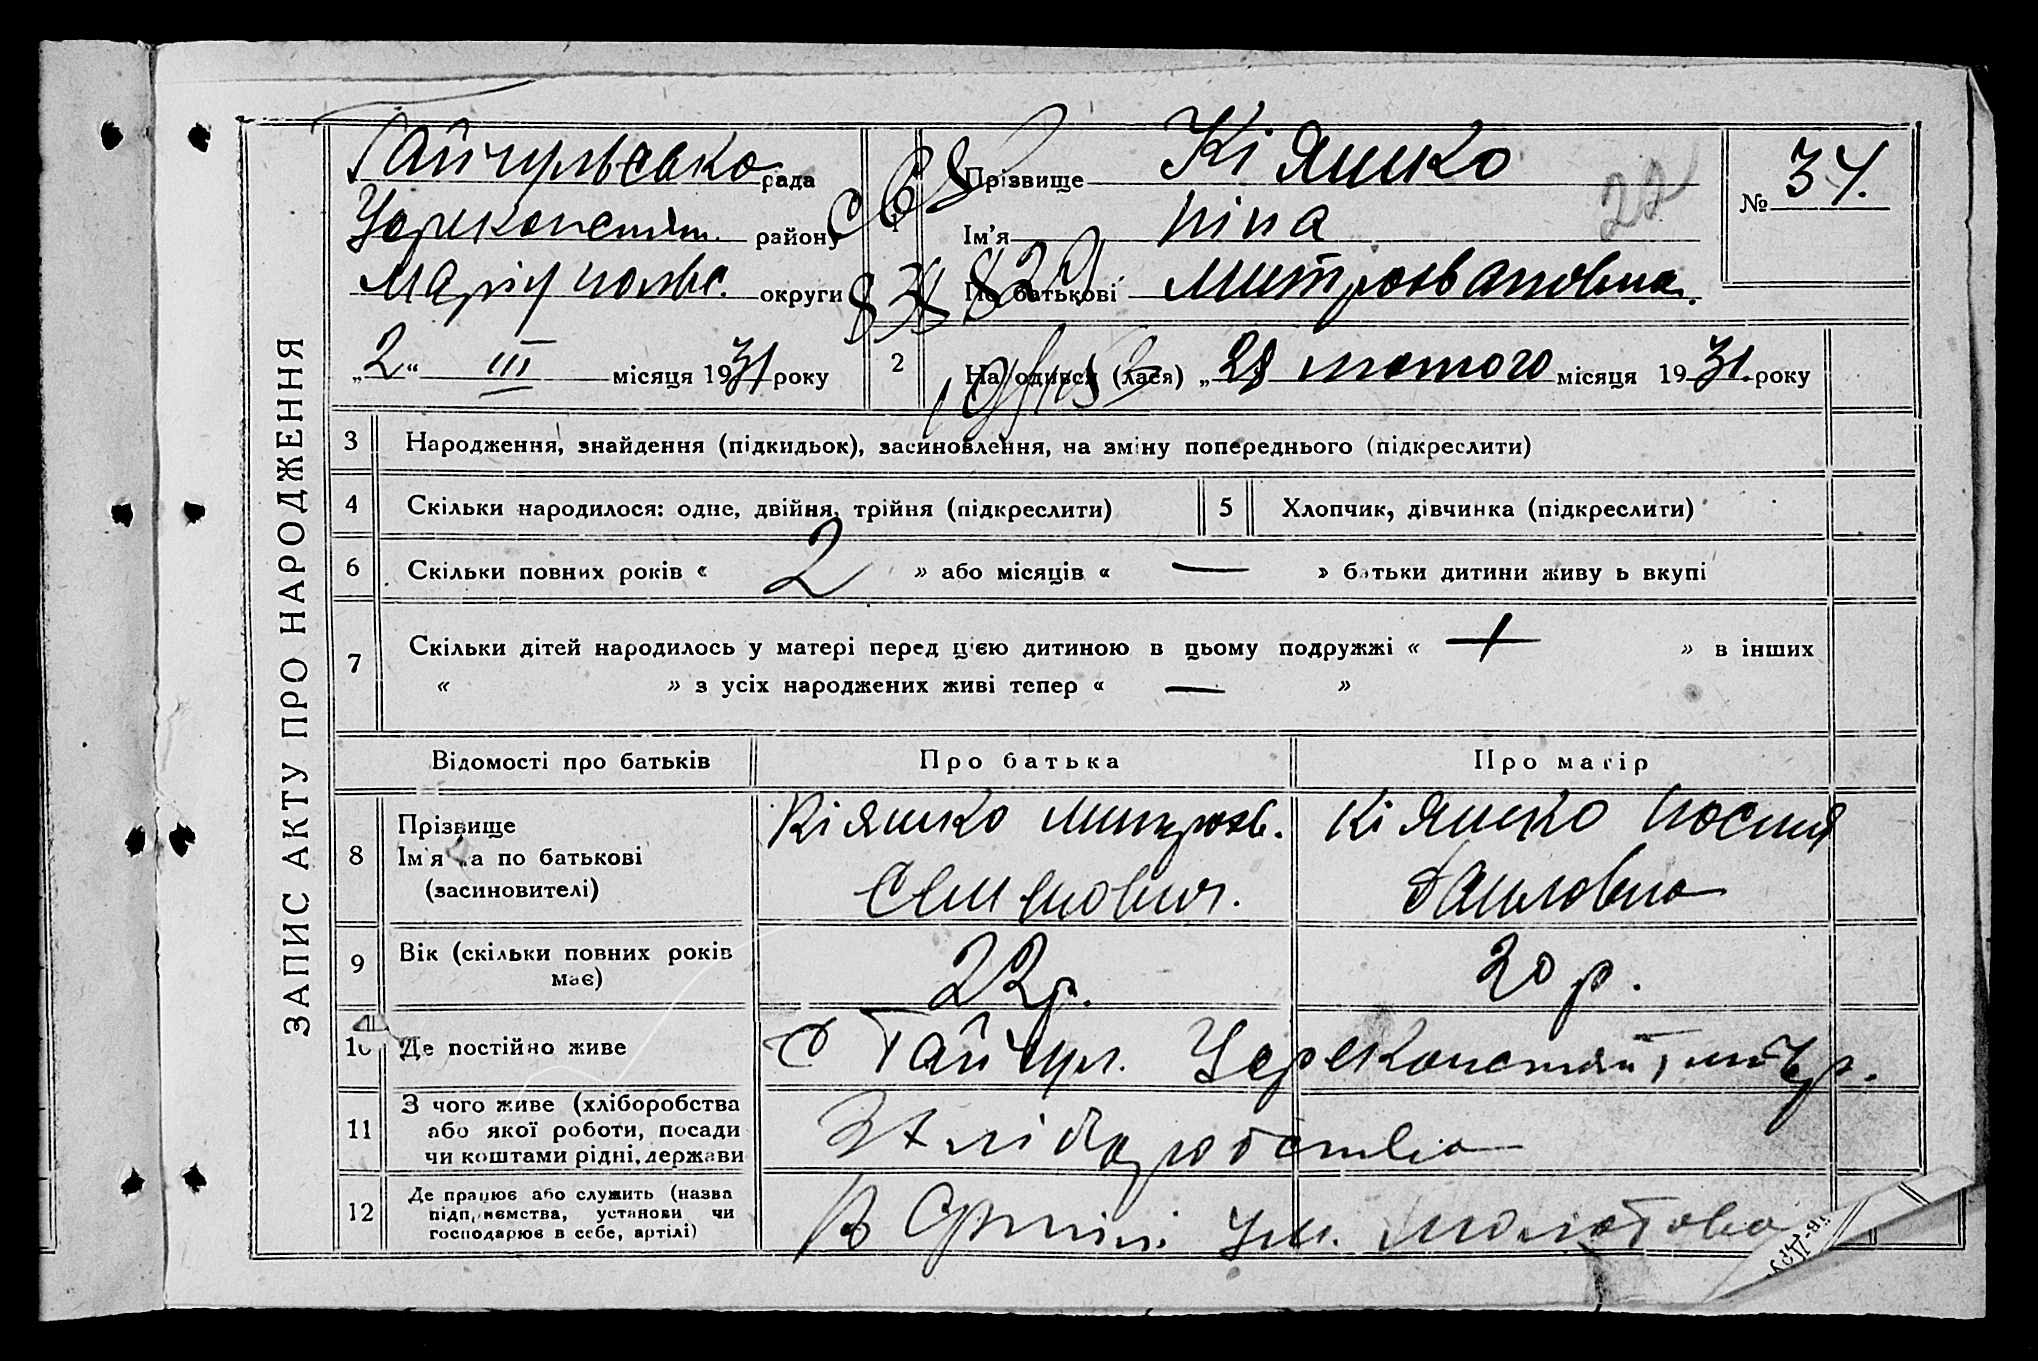 ЗАПИС АКТУ ПРО НАРОДЖЕННЯ
Гайчульсько рада
району
Маріупольс. округи
„2“ III місяця 1931 року
Прізвище Кіяшко
22
№ 34.
Ім'я Ніна
По батькові Митрофановна.
2 Народився (лася) „28 лютого місяця 1931. року
3 Народження, знайдення (підкидьок), засиновлення, на зміну попереднього (підкреслити)
4 Скільки народилося: одне, двійня, трійня (підкреслити) 5 Хлопчик, дівчинка (підкреслити)
6 Скільки повних років « 2 » або місяців « — » батьки дитини живуть вкупі
7 Скільки дітей народилось у матері перед цією дитиною в цьому подружжі « » в інших
« » з усіх народжених живі тепер « — »
Відомості про батьків Про батька Про матір
8 Прізвище
Ім'я та по батькові
(засиновителі)
Кіяшко Митроф.
Семенович.
Кіяшко
Даниловна
9 Вік (скільки повних років має)
22 р. 20 р.
10 Де постійно живе
С Гайчул.
11 З чого живе (хліборобства
або якої роботи, посади
чи коштами рідні, держави
З хліборобства
12 Де працює або служить (назва
підприємства, установи чи
господарює в себе, артілі)
В Артілі Ім. Молотова